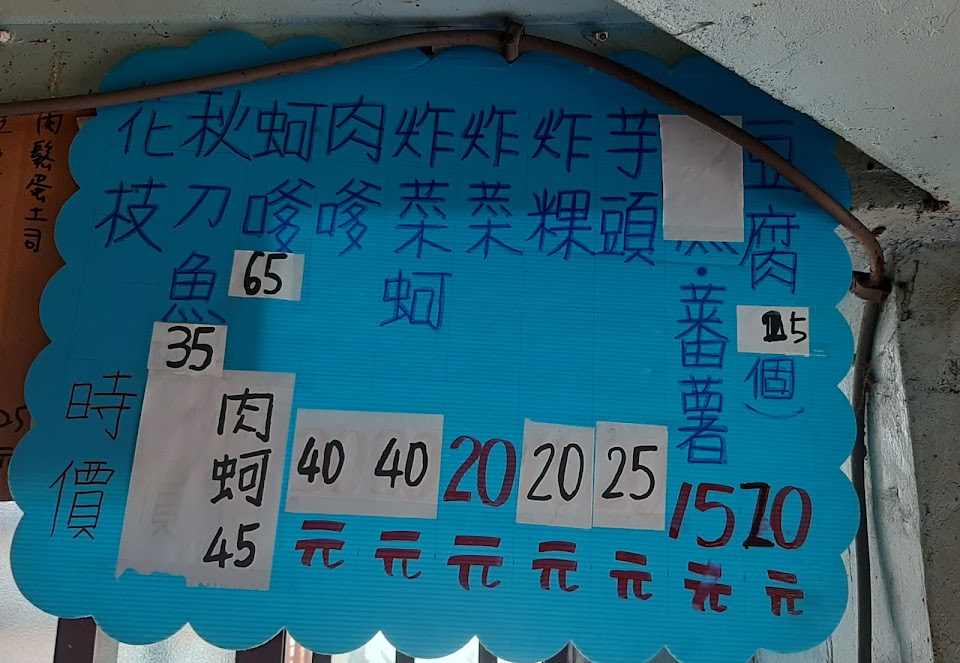 豆腐
個）
元
．蕃薯 15元
芋頭 25元
炸粿 20元
炸菜 20元
炸菜蚵 40元
肉嗲 40元
蚵嗲 65
肉蚵 45
秋刀魚 35
花枝 時價
肉鬆蛋土司